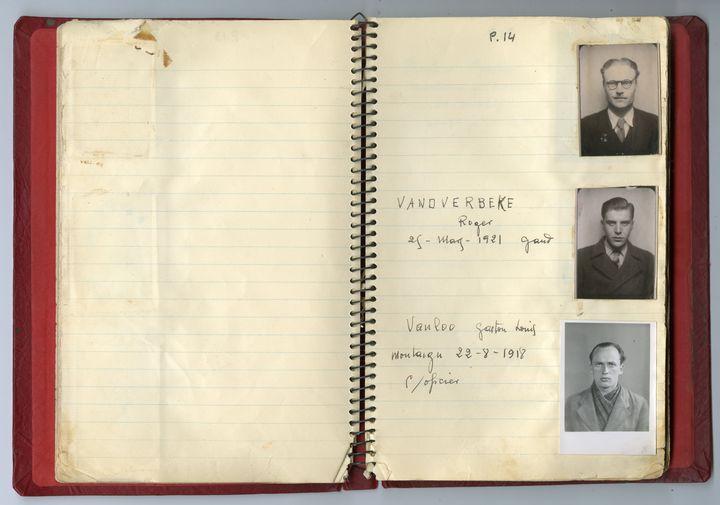 P.14
VANOVERBEKE
Roger
25 - Mars - 1921 Gand
Vanloo Gaston Louis
Montaigu 22-8-1918
S/officier